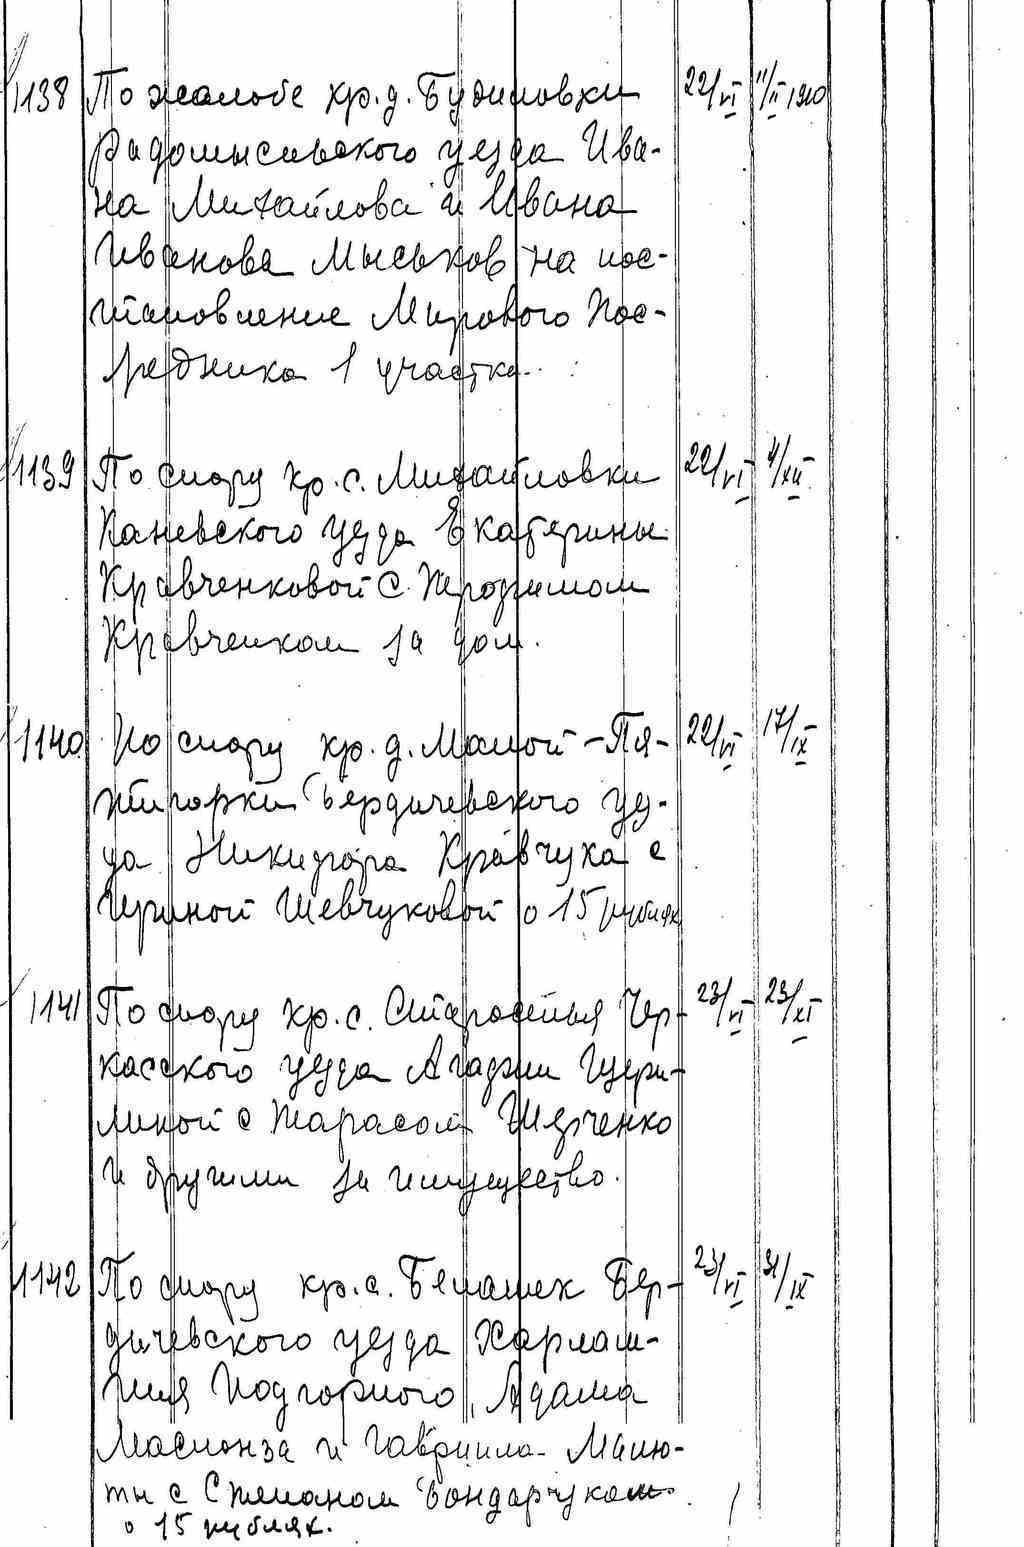 1138 По жалобе кр. д. Будиловки 22/VI 11/II 1910
Радомысльского уезда Ива-
на Михайлова и Ивана
Иванова Мыськов на пос-
тановление Мирового Пос-
редника 1 участка.
1139 По спору кр. с. Михайловки 22/VI 4/XII
Каневского уезда Екатерины
Кравченковой с Трофимом
Кравченком за дом.
1140 По спору кр. д. Малой-Пя- 22/VI 17/IX
тигорки Бердичевского уез-
да Никифора Кравчука с
Ириной Шевчуковой о 15 рублях
1141 По спору кр. с. Староселья Чер- 23/VI 23/XI
касского уезда Агафии
с Тарасом
и другими за имущество.
1142 По спору кр. с. Белашек Бер- 23/VI 31/IX
дичевского уезда Харлам-
пия Подгорного, Адама
и Гавриила Малю-
ты с Степаном Бондарчуком
о 15 рублях.